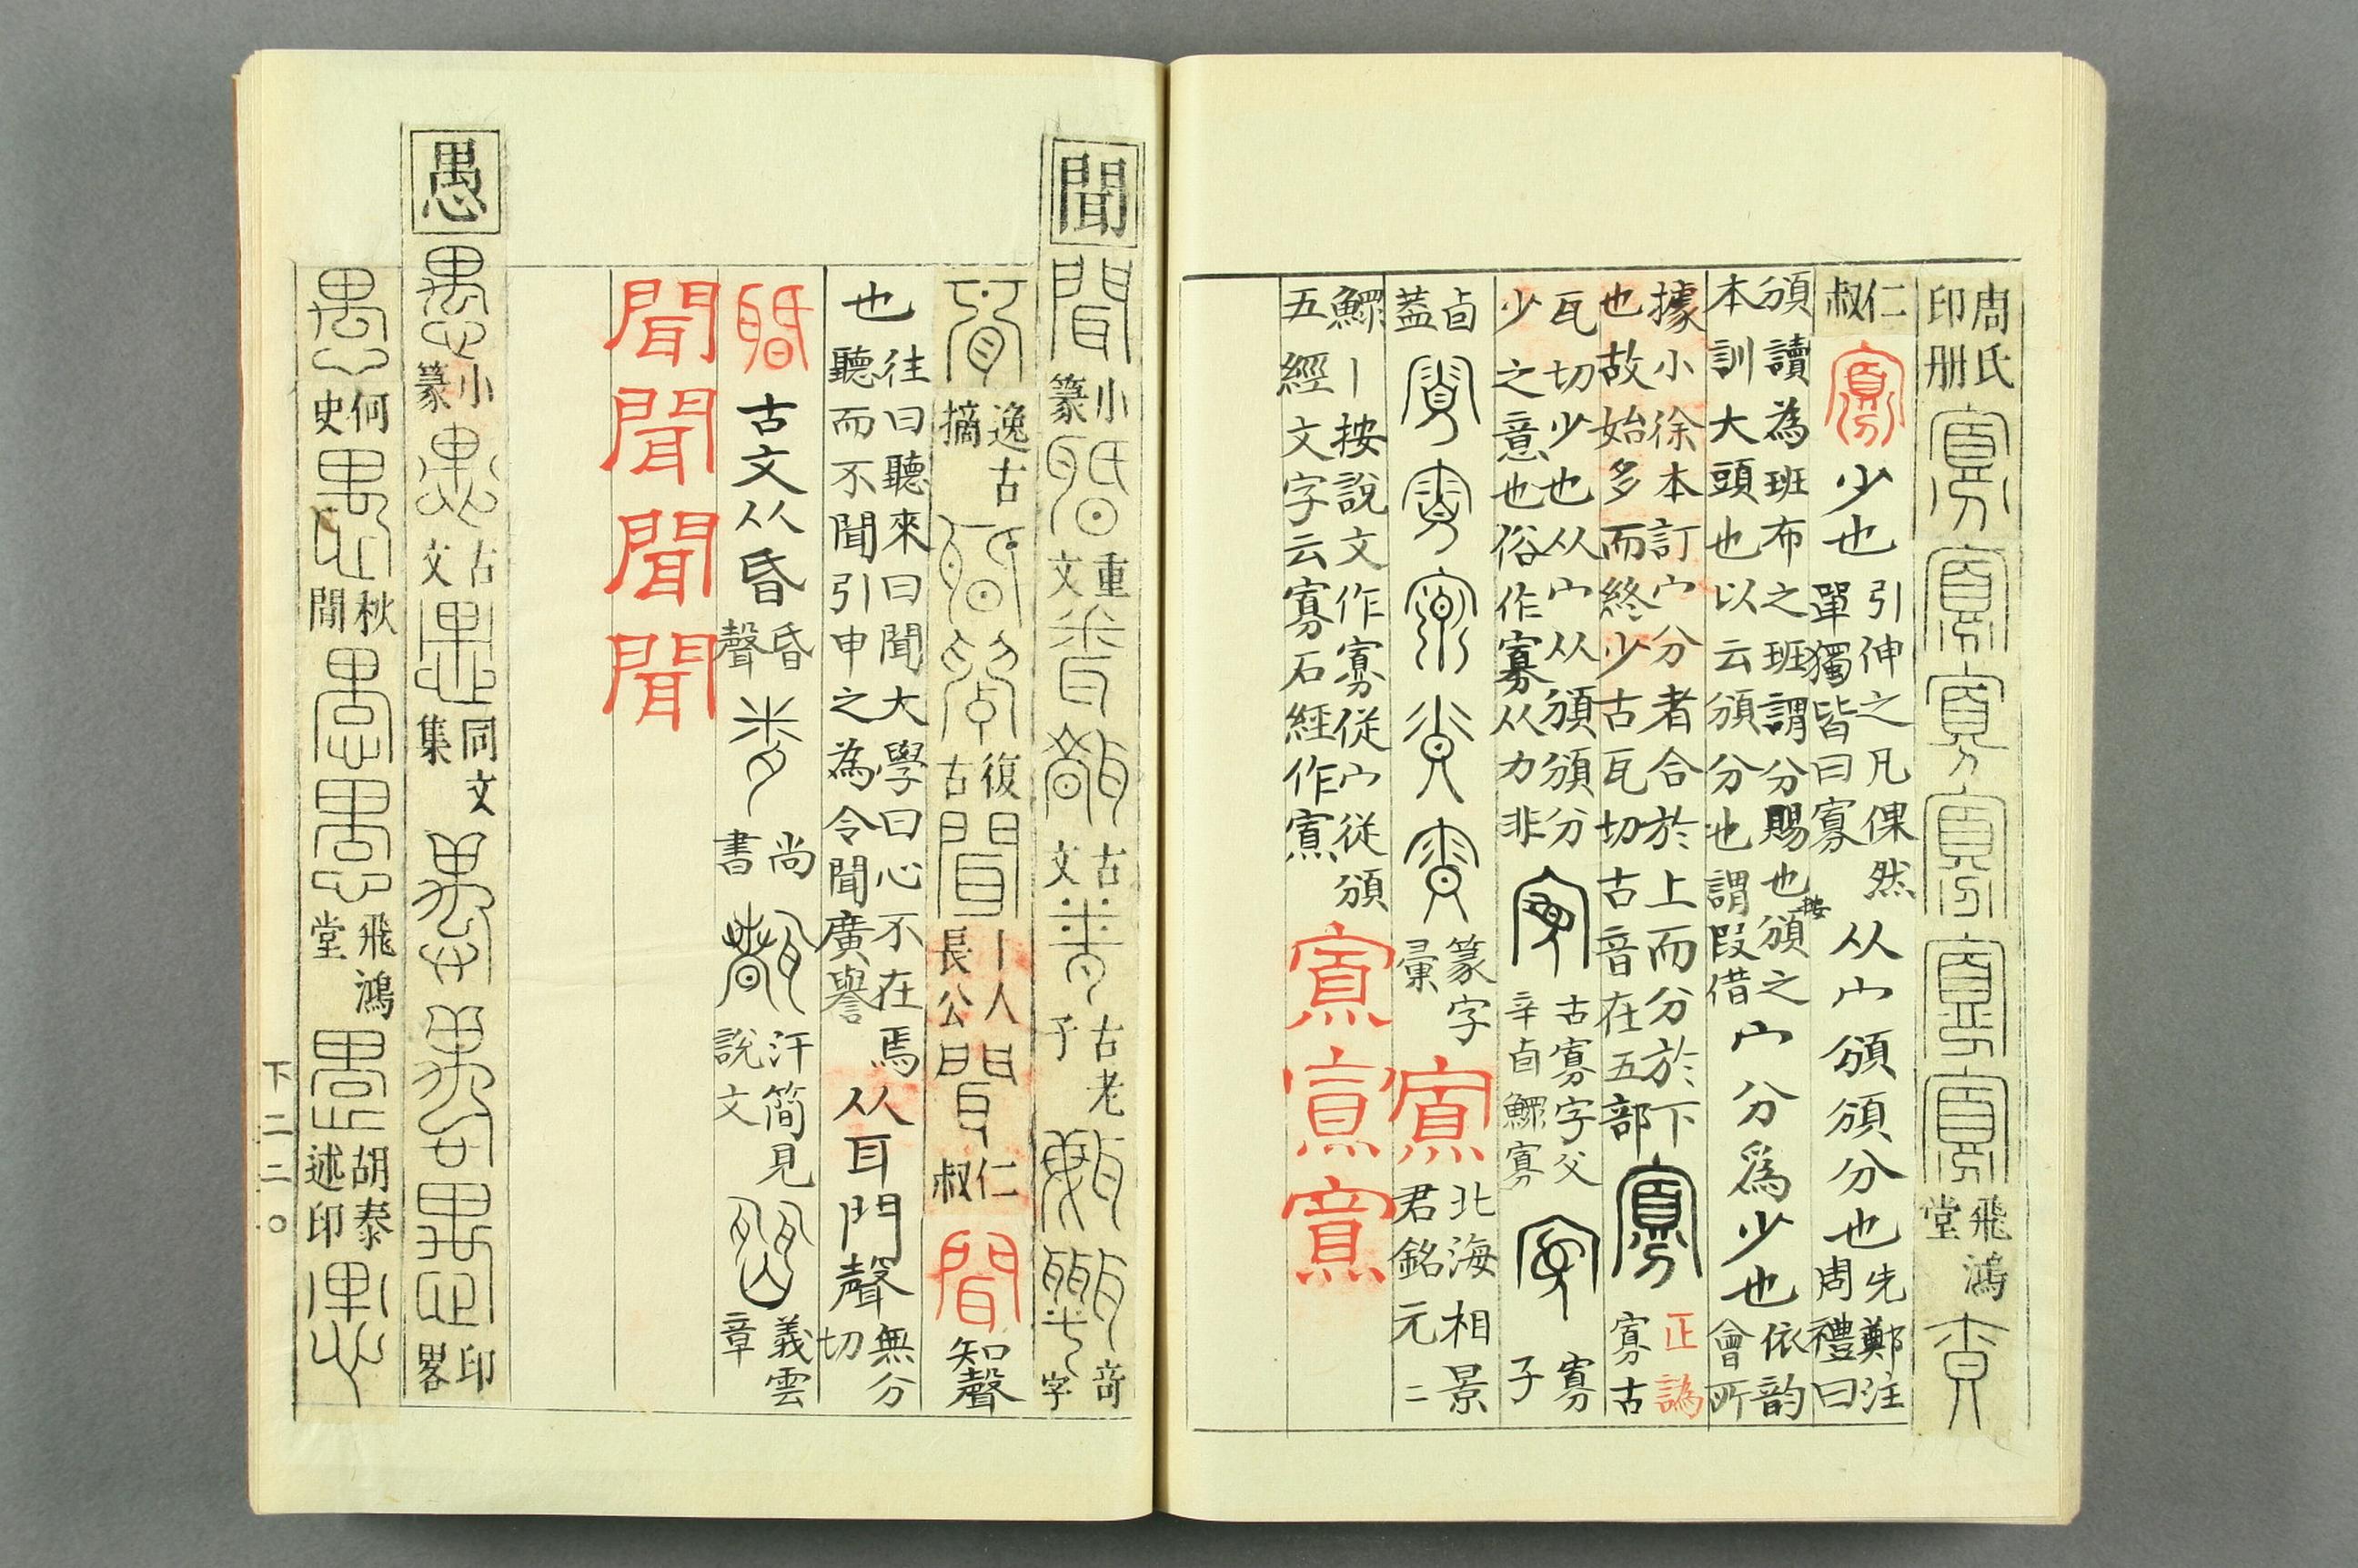 周氏印册 寡 寡 寡 寡 寡 寡 飛鴻堂 寡
仁叔 寡 少也 引伸之凡倮然單獨皆曰寡 从宀頒頒分也 先鄭注周禮曰
頒讀為班布之班謂分賜也 按頒之本訓大頭也以云頒分也謂叚借 宀分爲少也 依韵會所
據小徐本訂宀分者合於上而分於下也故始多而終少古瓦切古音在五部 寡 正譌 寡古
瓦切少也从宀从頒頒分少之意也俗作寡从力非 寡 古寡字父辛卣鰥寡 寡 寡子
卣蓋 寡 寡 寡 寡 寡 篆字彙 寡 北海相景君銘元二
鰥丨按說文作寡從宀從頒五經文字云寡石經作寡 寡 寡 寡
聞 聞 小篆 聞 重文 聞 聞 古文 聞 古老子 聞 聞 奇字
聞 逸古摘 聞 聞 復古 聞 丨人長公 聞 仁叔 聞 知聲
也 往曰聽來曰聞大學曰心不在焉聽而不聞引申之為令聞廣譽 从耳門聲 無分切
古文从昏 昏聲 聞 尚書 聞 汗簡見說文 聞 義雲章
聞 聞 聞 聞
愚 愚 小篆 愚 古文 愚 同文集 愚 愚 愚 印畧
愚 何史 愚 秋閒 愚 愚 飛鴻堂 愚 胡泰述印 愚
下二二〇